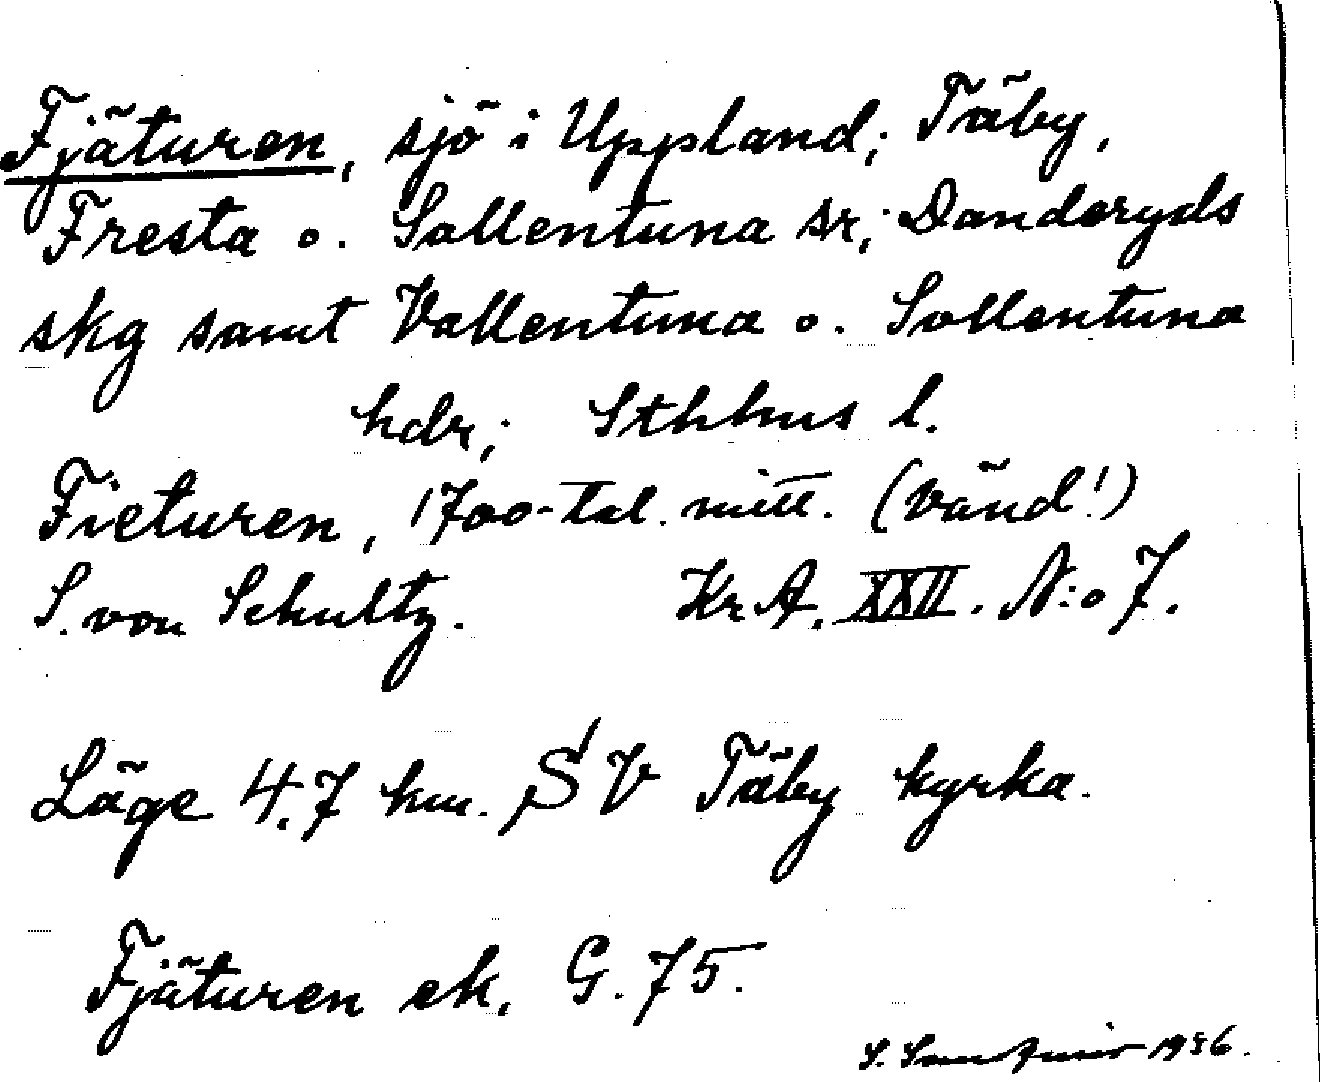 Fjäturen, sjö i Uppland; Täby,
Fresta o. Sollentuna sr; Danderyds
skg samt Vallentuna o. Sollentuna
hdr; Sthlms l.
Fieturen, 1700-tal. mitt. (Vänd!)
S. von Schultz. Kr.A. XXII. N:o 7.
Läge 4.7 km. S V Täby kyrka.
Fjäturen ek. G. 75.
S. 1936.